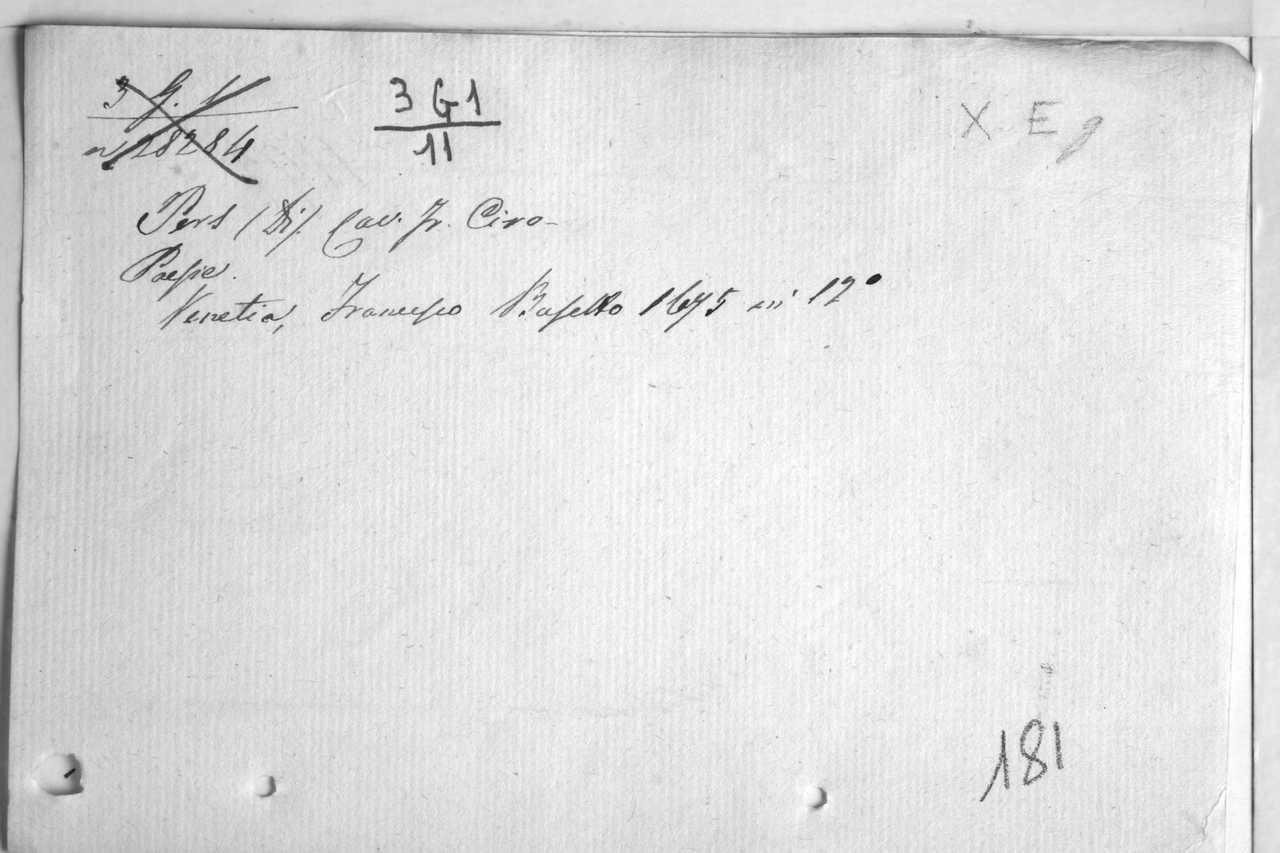 3 G. V
n 28284
3 G 1
11
X E g
Pers (Di). Cav. Fr. Ciro-
Poesie.
Venetia, Francesco Basello 1675 in 12°
181